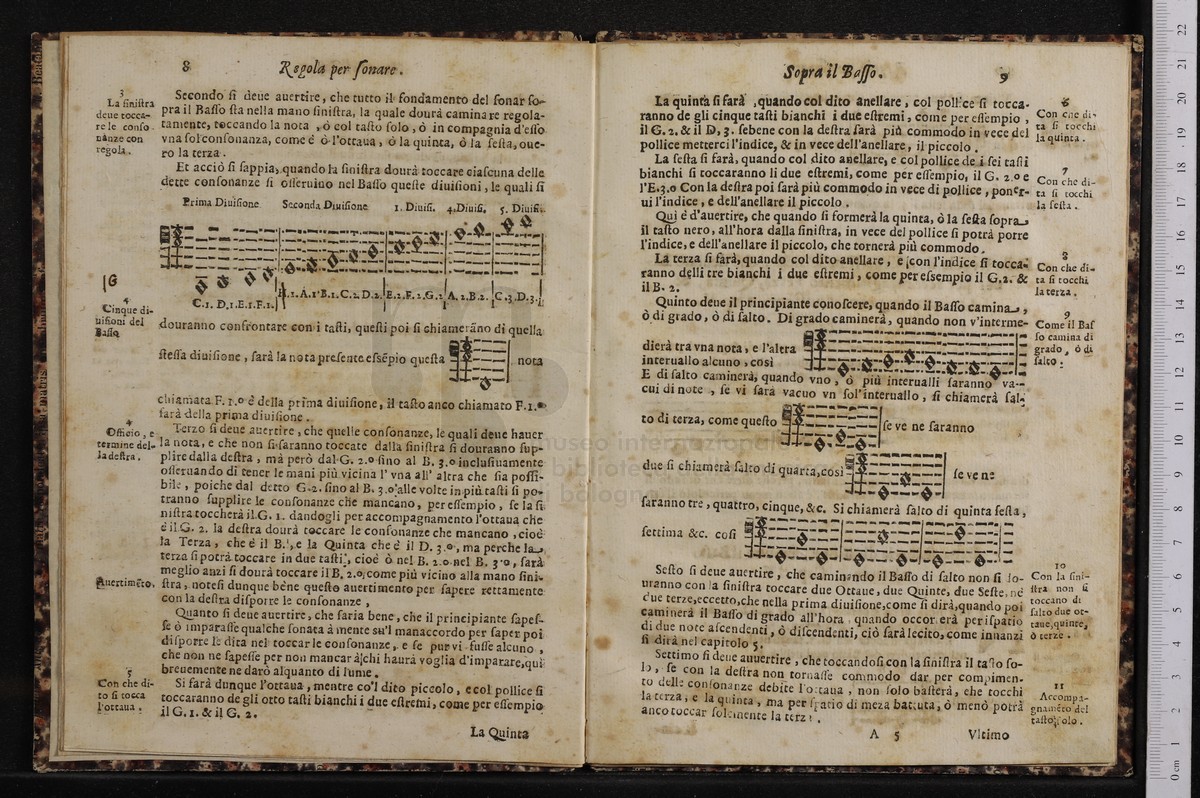 8 Regola per sonare.
3
La sinistra
deue tocca-
re le conso-
nanze con
regola.
Secondo si deue auertire, che tutto il fondamento del sonar so-
pra il Basso sta nella mano sinistra, la quale dourà caminare regola-
tamente, toccando la nota, ó col tasto solo, ò in compagnia d'esso
vna sol consonanza, come è ò l'ottaua, ó la quinta, ò la sesta, oue-
ro la terza.
Et acciò si sappia, quando la sinistra dourà toccare ciascuna delle
dette consonanze si osseruino nel Basso queste diuisioni, le quali si
Prima Diuisione Seconda Diuisione 1. Diuisi. 4. Diuisi. 5. Diuisi.
C.1. D.1. E.1. F.1. G.1. A.1. B.1. C.2. D.2. E.2. F.2. G.2. A.2. B.2. C.3. D.3.
4
Cinque di-
uisioni del
Basso
douranno confrontare con i tasti, questi poi si chiamerāno di quella
stessa diuisione, sarà la nota presente essēpio questa nota
chiamata F. 1.o è della prima diuisione, il tasto anco chiamato F. 1.o
sarà della prima diuisione.
4
Officio, e
termine del-
la destra.
Terzo si deue auertire, che quelle consonanze, le quali deue hauer
la nota, e che non si saranno toccate dalla sinistra si douranno sup-
plire dalla destra, mà però dal G. 2.o sino al B. 3.o inclusiuamente
osseruando di tener le mani più vicina l'vna all'altra che sia possi-
bile, poiche dal detto G. 2. sino al B. 3.o alle volte in più tasti si po-
tranno supplire le consonanze che mancano, per essempio, se la si-
nistra toccherà il G. 1. dandogli per accompagnamento l'ottaua che
è il G. 2. la destra dourà toccare le consonanze che mancano, cioè
la Terza, che è il B., e la Quinta che è il D. 3.o, ma perche la
terza si potrà toccare in due tasti, cioè ò nel B. 2.o nel B. 3.o, sarà
meglio anzi si dourà toccare il B. 2.o, come più vicino alla mano sini-
Auertimēto.
stra, notesi dunque bene questo auertimento per sapere rettamente
con la destra disporre le consonanze,
Quanto si deue auertire, che saria bene, che il principiante sapes-
se ò imparasse qualche sonata à mente su'l manaccordo per saper poi
disporre le dita nel toccar le consonanze, e se pur vi fusse alcuno,
che non ne sapesse per non mancar à chi haurà voglia d'imparare, quì
breuemente ne darò alquanto di lume.
5
Con che di-
to si tocca
l'ottaua.
Si farà dunque l'ottaua, mentre co'l dito piccolo, e col pollice si
toccaranno de gli otto tasti bianchi i due estremi, come per essempio
il G. 1. & il G. 2.
La Quinta
Sopra il Basso. 9
La quinta si farà, quando col dito anellare, col pollice si tocca-
ranno de gli cinque tasti bianchi i due estremi, come per essempio,
il G. 2. & il D. 3. sebene con la destra sarà più commodo in vece del
pollice metterci l'indice, & in vece dell'anellare, il piccolo.
6
Con che di-
ta si tocchi
la quinta.
La sesta si farà, quando col dito anellare, e col pollice de i sei tasti
bianchi si toccaranno li due estremi, come per essempio, il G. 2.o e
l'E. 3.o Con la destra poi sarà più commodo in vece di pollice, poner-
ui l'indice, e dell'anellare il piccolo.
7
Con che di-
ta si tocchi
la sesta.
Quì è d'auertire, che quando si formerà la quinta, ò la sesta sopra
il tasto nero, all'hora dalla sinistra, in vece del pollice si potrà porre
l'indice, e dell'anellare il piccolo, che tornerà più commodo.
La terza si farà, quando col dito anellare, e con l'indice si tocca-
ranno delli tre bianchi i due estremi, come per essempio il G. 2. &
il B. 2.
8
Con che di-
ta si tocchi
la terza.
Quinto deue il principiante conoscere, quando il Basso camina,
ò di grado, ò di salto. Di grado caminerà, quando non v'interme-
dierà tra vna nota, e l'altra
interuallo alcuno, così
9
Come il Bas
so camina di
grado, ò di
salto.
E di salto caminerà, quando vno, ò più interualli saranno va-
cui di note, se vi sarà vacuo vn sol'interuallo, si chiamerà sal-
to di terza, come questo se ve ne saranno
due si chiamerà salto di quarta, così se ve ne
saranno tre, quattro, cinque, &c. Si chiamerà salto di quinta sesta,
settima &c. così
Sesto si deue auertire, che caminando il Basso di salto non si do-
uranno con la sinistra toccare due Ottaue, due Quinte, due Seste, nè
due terze, eccetto, che nella prima diuisione, come si dirà, quando poi
caminerà il Basso di grado all'hora quando occorrerà per ispatio
di due note ascendenti, ò discendenti, ciò sarà lecito, come innanzi
si dirà nel capitolo 5.
10
Con la sini-
stra non si
toccano di
salto due ot-
taue, quinte,
ò terze.
Settimo si deue auuertire, che toccandosi con la sinistra il tasto so-
lo, se con la destra non tornasse commodo dar per compimen-
to delle consonanze debite l'ottaua, non solo basterà, che tocchi
la terza, e la quinta, ma per spatio di meza battuta, ò menò potrà
anco toccar solamente la terza.
11
Accompa-
gnamēto del
tasto solo.
A 5 Vltimo